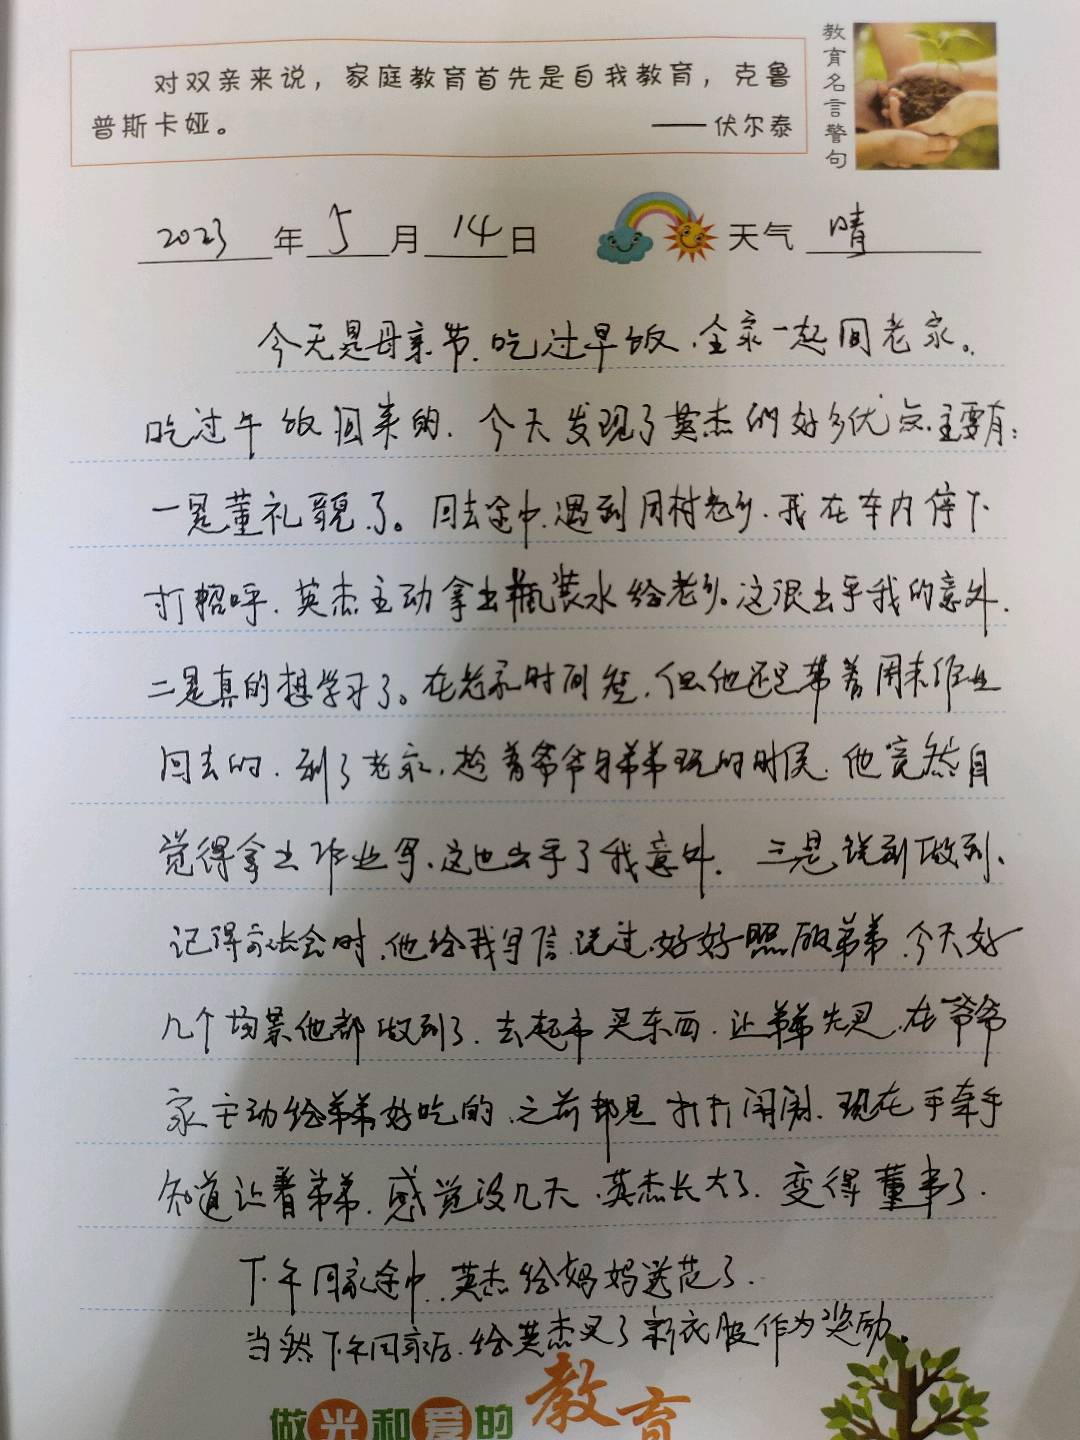 对双亲来说，家庭教育首先是自我教育，克鲁
普斯卡娅。
——伏尔泰
教育名言警句
2023年5月14日 天气 晴
今天是母亲节、吃过早饭，全家一起回老家。
吃过午饭回来的. 今天发现了英杰的好多优点.主要有：
一是董礼貌了。回去途中.遇到同村老乡.我在车内停下
打招呼.英杰主动拿出瓶装水给老乡。这很出乎我的意外.
二是真的想学习了。在老家时间短，但他还是带着周末作业
回去的.到了老家，趁着爷爷与弟弟玩的时候.他竟然自
觉得拿出作业写、这也出乎了我意外. 三是说到做到、
记得家长会时.他给我写信.说过好好照顾弟弟.今天好
几个场景他都做到了.去超市买东西.让弟弟先.在爷爷
家主动给弟弟好吃的、之前都是打打闹闹.现在手牵手
知道让着弟弟.感觉没几天.英杰长大了.变得董事了.
下午回家途中.英杰给妈妈送花了.
当然下午回家后.给英杰买了新衣服作为奖励.
做光和爱的教育